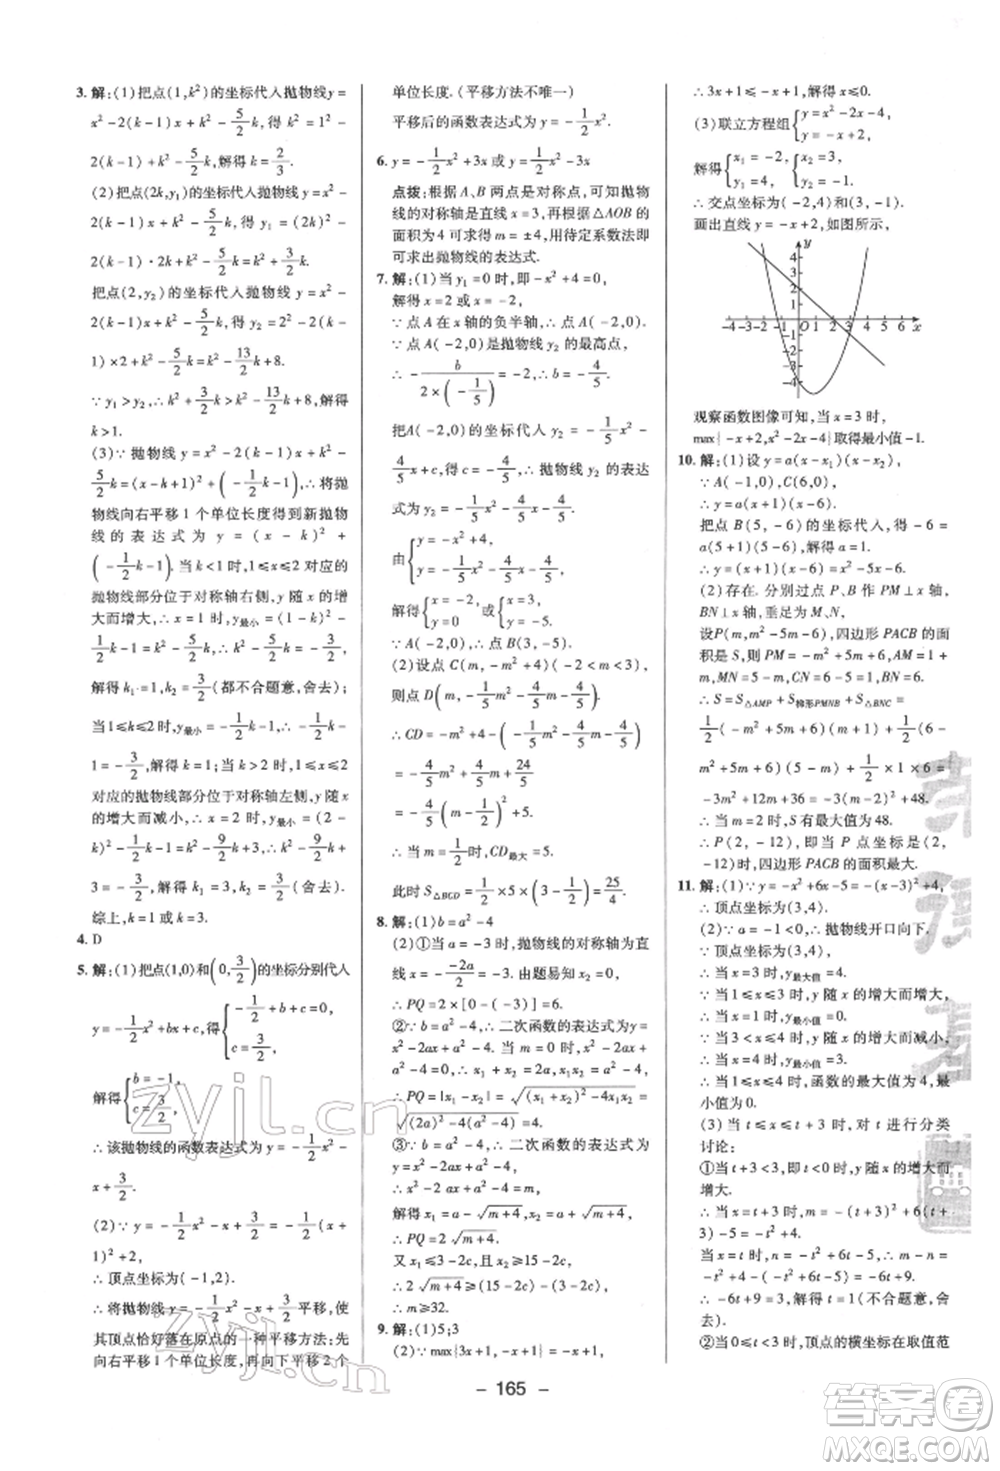 3. 解:(1)把点(1,k²)的坐标代入抛物线y=
x²-2(k-1)x+k²-5/2k,得k²=1²-
2(k-1)+k²-5/2k,解得k=2/3.
(2)把点(2k,y₁)的坐标代入抛物线y=x²-
2(k-1)x+k²-5/2k,得y₁=(2k)²-
2(k-1)·2k+k²-5/2k=k²+3/2k,
把点(2,y₂)的坐标代入抛物线y=x²-
2(k-1)x+k²-5/2k,得y₂=2²-2(k-
1)×2+k²-5/2k=k²-13/2k+8.
∵y₁>y₂,∴k²+3/2k>k²-13/2k+8,解得
k>1.
(3)∵抛物线y=x²-2(k-1)x+k²-
5/2k=(x-k+1)²+(-1/2k-1),∴将抛
物线向右平移1个单位长度得到新抛物
线的表达式为y=(x-k)²+
(-1/2k-1).当k<1时,1≤x≤2对应的
抛物线部分位于对称轴右侧,y随x的增
大而增大,∴x=1时,y最小=(1-k)²-
1/2k-1=k²-5/2k,∴k²-5/2k=-3/2,
解得k₁=1,k₂=3/2(都不合题意,舍去);
当1≤k≤2时,y最小=-1/2k-1,∴-1/2k-
1=-3/2,解得k=1;当k>2时,1≤x≤2
对应的抛物线部分位于对称轴左侧,y随x
的增大而减小,∴x=2时,y最小=(2-
k)²-1/2k-1=k²-9/2k+3,∴k²-9/2k+
3=-3/2,解得k₁=3,k₂=3/2(舍去).
综上,k=1或3.
4. D
5. 解:(1)把点(1,0)和(0,3/2)的坐标分别代入
y=-1/2x²+bx+c,得{-1/2+b+c=0, c=3/2,
解得{b=-1, c=3/2.
∴该抛物线的函数表达式为y=-1/2x²-
x+3/2.
(2)∵y=-1/2x²-x+3/2=-1/2(x+
1)²+2,
∴顶点坐标为(-1,2).
∴将抛物线y=-1/2x²-x+3/2平移,使
其顶点恰好落在原点的一种平移方法:先
向右平移1个单位长度,再向下平移2个
单位长度.(平移方法不唯一)
平移后的函数表达式为y=-1/2x².
6. y=-1/2x²+3x或y=1/2x²-3x
点拨:根据A、B两点是对称点,可知抛物
线的对称轴是直线x=3,再根据△AOB的
面积为4可求得m=±4,用待定系数法即可
求出抛物线的表达式.
7. 解:(1)当y₁=0时,即-x²+4=0,
解得x=2或x=-2,
∵点A在x轴的负半轴,∴点A(-2,0).
∵点A(-2,0)是抛物线y₂的最高点,
∴-b/(2×(-1/5))=-2,∴b=-4/5.
把A(-2,0)的坐标代入y₂=-1/5x²-
4/5x+c,得c=-4/5,∴抛物线y₂的表达
式为y₂=-1/5x²-4/5x-4/5.
由{y=-x²+4, y=-1/5x²-4/5x-4/5,
解得{x=-2, y=0或{x=3, y=-5.
∵A(-2,0),∴点B(3,-5).
(2)设点C(m,-m²+4)(-2<m<3),
则点D(m,-1/5m²-4/5m-4/5),
∴CD=-m²+4-(-1/5m²-4/5m-4/5)
=-4/5m²+4/5m+24/5
=-4/5(m-1/2)²+5.
∴当m=1/2时,CD最大=5.
此时S△BCD=1/2×5×(3-1/2)=25/4.
8. 解:(1)b=a²-4
(2)①当a=-3时,抛物线的对称轴为直
线x=--2a/2=a=-3.由题易知x₂=0,
∴PQ=2×[0-(-3)]=6.
②∵b=a²-4,∴二次函数的表达式为
y=x²-2ax+a²-4,∴x₁+x₂=2a,
x₁x₂=a²-4.
∴PQ=|x₁-x₂|=√((x₁+x₂)²-4x₁x₂)=
√((2a)²-4(a²-4))=4.
③∵b=a²-4,∴二次函数的表达式为
y=x²-2ax+a²-4.
∴x²-2ax+a²-4=m.
解得x₁=a-√(m+4),x₂=a+√(m+4).
∴PQ=2√(m+4).
又x₁≤3-c,x₂≥15-3c,
∴2√(m+4)≥(15-2c)-(3-2c),
∴m≥32.
9. 解:(1)5;3
(2)∵max{3x+1,-x+1}=-x+1,
∴3x+1≤-x+1,解得x≤0.
(3)联立方程组{y=x²-2x-4, y=-x+2,
解得{x₁=-2, y₁=4,{x₂=3, y₂=-1.
∴交点坐标为(-2,4)和(3,-1).
画出直线y=-x+2,如图所示,
y
4
3
2
1
-4 -3 -2 -1 O 1 2 3 4 5 6 x
-1
-2
-3
-4
观察函数图像可知,当x=3时,
max{-x+2,x²-2x-4}取得最小值-1.
10. 解:(1)设y=a(x-x₁)(x-x₂),
∵A(-1,0),C(6,0),
∴y=a(x+1)(x-6).
把点B(5,-6)的坐标代入,得-6=
a(5+1)(5-6),解得a=1.
∴y=(x+1)(x-6)=x²-5x-6.
(2)存在.分别过点P、B作PM⊥x轴,
BN⊥x轴,垂足为M、N,
设P(m,m²-5m-6),四边形PACB的面
积是S,则PM=-m²+5m+6,AM=m+
1,MN=5-m,CN=6-5=1,BN=6.
∴S=S△AMP+S梯形PMNB+S△BNC=
1/2(-m²+5m+6)(m+1)+1/2(6-
m²+5m+6)(5-m)+1/2×1×6=
-3m²+12m+36=-3(m-2)²+48,
∴当m=2时,S有最大值为48.
∴P(2,-12),即当P点坐标为(2,
-12)时,四边形PACB的面积最大.
11. 解:(1)∵y=-x²+6x-5=-(x-3)²+4,
∴顶点坐标为(3,4).
(2)∵a=-1<0,∴抛物线开口向下.
∵顶点坐标为(3,4),
∴当x=3时,y最大值=4.
∵当1≤x≤3时,y随x的增大而增大,
∴当x=1时,y最小值=0.
∵当3<x≤4时,y随x的增大而减小,
∴当x=4时,y最小值=3.
∴当1≤x≤4时,函数的最大值为4,最
小值为0.
(3)当t≤x≤t+3时,对t进行分类
讨论:
①当t+3<3,即t<0时,y随x的增大而
增大.
∴当x=t+3时,m=-(t+3)²+6(t+
3)-5=-t²+4,
当x=t时,n=-t²+6t-5,∴m-n=
-t²+4-(-t²+6t-5)=-6t+9.
∴-6t+9=3,解得t=1(不合题意,舍
去).
②当0≤t<3时,顶点的横坐标在取值范
- 165 -
zyjl.cn
zyjl.cn
答案圈
MXQE.COM